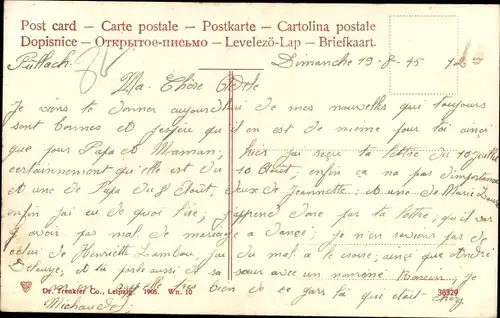 Post card – Carte postale – Postkarte – Cartolina postale
Dopisnice – Открытое-письмо – Levelező-Lap – Briefkaart.
Pullach. Dimanche 19-8-45
Ma Chère
Je viens te donner aujourd'hui de mes nouvelles qui toujours
sont bonnes et j'espère qu'il en est de même pour toi ainsi
que pour Papa et Maman; hier j'ai reçu ta lettre du 10 juillet
certainement qu'elle est du 10 Août, enfin ça n'a pas d'importance
et une de Papa du 8 Août, deux de Jeannette; et une de Marie
enfin j'ai eu de quoi lire; j'apprend donc par ta lettre, qu'il va
y avoir pas mal de mariage à je n'en savais pas de
celui de Henriette Lambou, j'ai du mal à le croire; ainsi que André
et ta parle aussi de sa sœur avec un nommé Je
bien de ce gars là qui était chez
Dr. Trenkler Co., Leipzig. 1906. Wn. 10 38329
Michaud